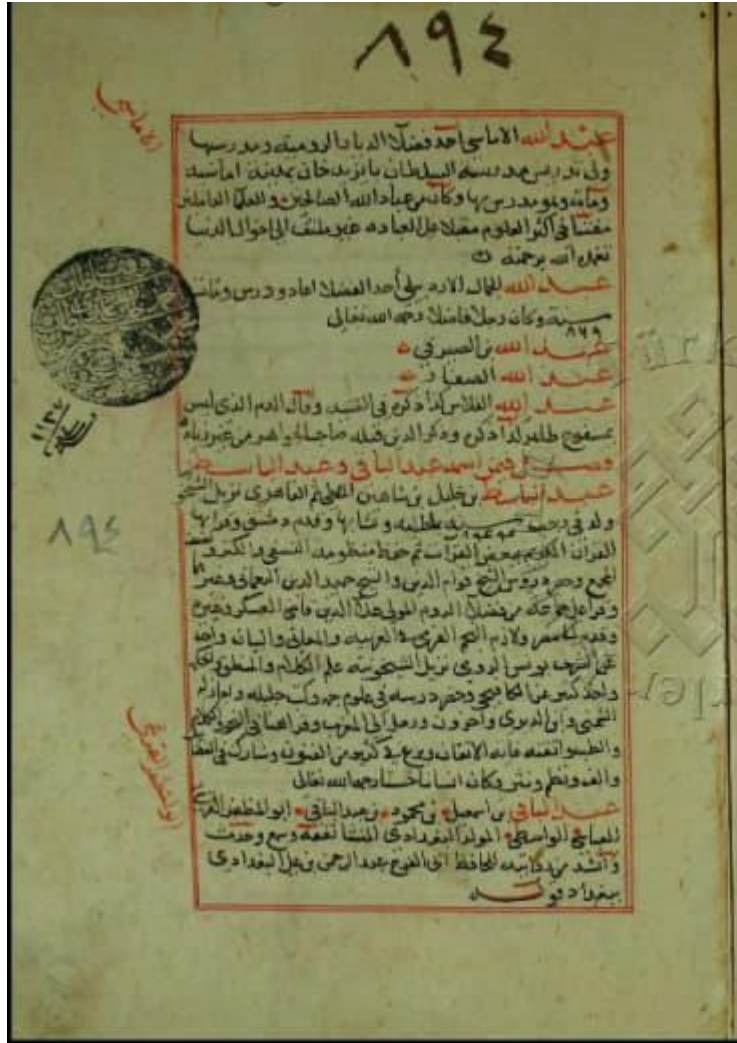 ٨٩٤
الاماسي
عبد الله الاماسي احد فضلاء الديار الرومية ومدرسيها
ولي تدريس مدرسة السلطان بايزيد خان بمدينة اماسية
ومات وهو مدرس بها وكان من عباد الله الصالحين والعلماء العاملين
مفننا في اكثر العلوم مقبلا على العبادة غير ملتفت الى احوال الدنيا
تغمده الله برحمته
عبد الله الجمال الاردبيلي أحد الفضلاء اعاد ودرس ومات
سنة ٨٦٩ وكان رجلا فاضلا رحمه الله تعالى
عبد الله بن الصيرفي
عبد الله الصفار
عبد الله الفلاس كذا ذكره في القنية وقال الدم الذي ليس
بمسفوح طاهر كذا ذكره وذكر الذي قبله صاحب الجواهر من غير زيادة
فصل فيمن اسمه عبد الباقي وعبد الباسط
عبد الباسط بن خليل بن شاهين الملطي ثم القاهري نزيل الشيخونية
ولد في رجب سنة ٨٤٤ بملطية ونشا بها وقدم دمشق وقرا بها
القران الكريم ببعض القراات ثم حفظ منظومة النسفي والكنز و
المجمع وحضر دروس الشيخ قوام الدين والشيخ حميد الدين النعماني وغيرهما
وقرا على جماعة من فضلاء الروم المولى علاء الدين قاضي العسكر وغيره
وقدم مصر ولازم النجم القرمي في العربية والمعاني والبيان واخذ
عن الشرف يونس الرومي نزيل الشيخونية علم الكلام والمنطق والحكمة
واخذ كثيرا عن الكافيجي وحضر دروسه في علوم جمة وكتب جليلة واجاز له
الشمني وابن الديري واخرون ورحل الى المغرب وقرا هناك في النحو والكلام
والطب واتقنه غاية الاتقان وبرع في كثير من الفنون وشارك في الفضائل
والف ونظم ونثر وكان انسانا حسنا رحمه الله تعالى
عبد الباقي بن اسمعيل بن محمود بن عبد الباقي ابو المظفر
الواسطي المولد البغدادي المنشا تفقه وسمع وحدث
وانشد من كتابته للحافظ ابي الفرج عبد الرحمن بن علي البغدادي
ببغداد قوله
١١٣٧
٨٩٤